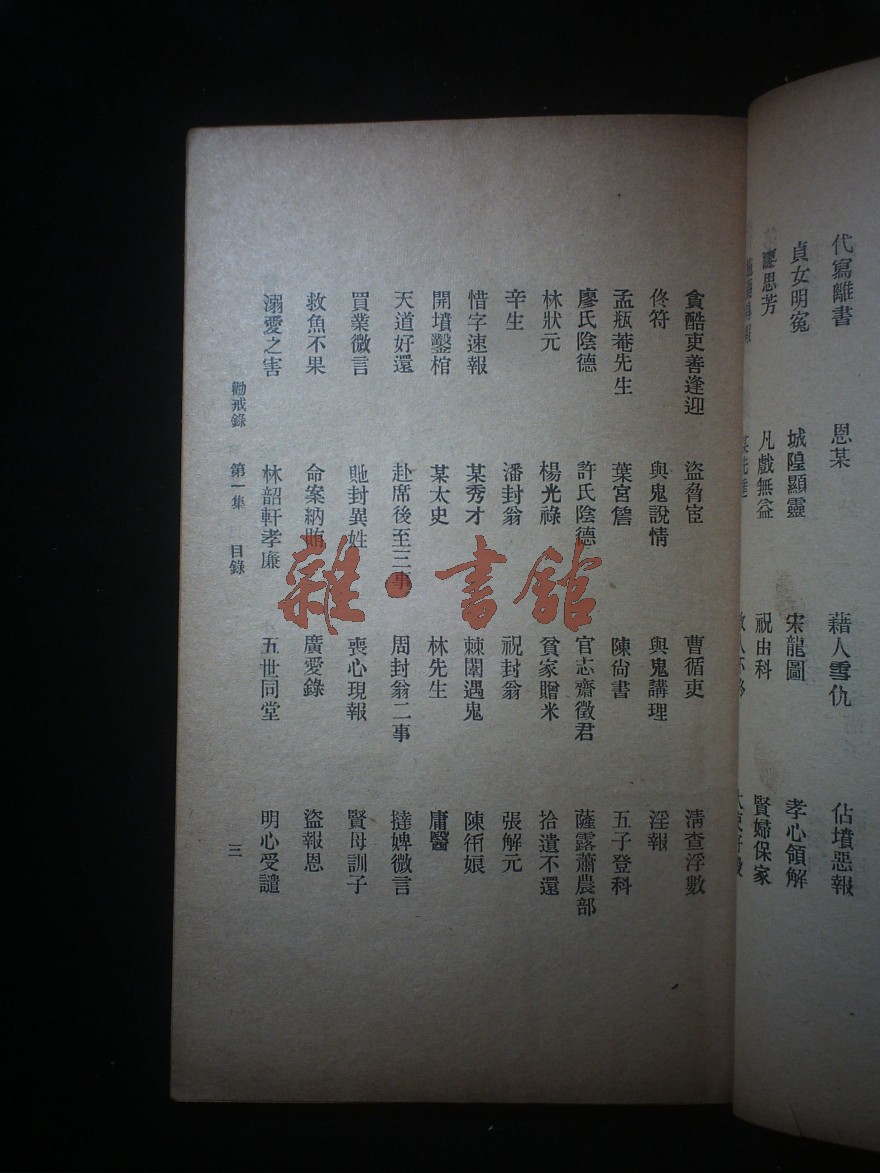 代寫離書 恩某 藉人雪仇 佔墳惡報
貞女明冤 城隍顯靈 宋龍圖 孝心領解
廖思芳 凡戲無益 祝由科 賢婦保家
貪酷吏善逢迎 盜脅宦 曹循吏 淸查浮數
佟符 與鬼說情 與鬼講理 淫報
孟瓶菴先生 葉宮詹 陳尙書 五子登科
廖氏陰德 許氏陰德 官志齋徵君 薩露蕭農部
林狀元 楊光祿 貧家贈米 拾遺不還
辛生 潘封翁 祝封翁 張解元
惜字速報 某秀才 棘闈遇鬼 陳衎娘
開墳鑿棺 某太史 林先生 庸醫
天道好還 赴席後至三事 周封翁二事 撻婢微言
買業微言 貤封異姓 喪心現報 賢母訓子
救魚不果 命案納賄 廣愛錄 盜報恩
溺愛之害 林韶軒孝廉 五世同堂 明心受譴
勸戒錄 第一集 目錄 三
雜·書館